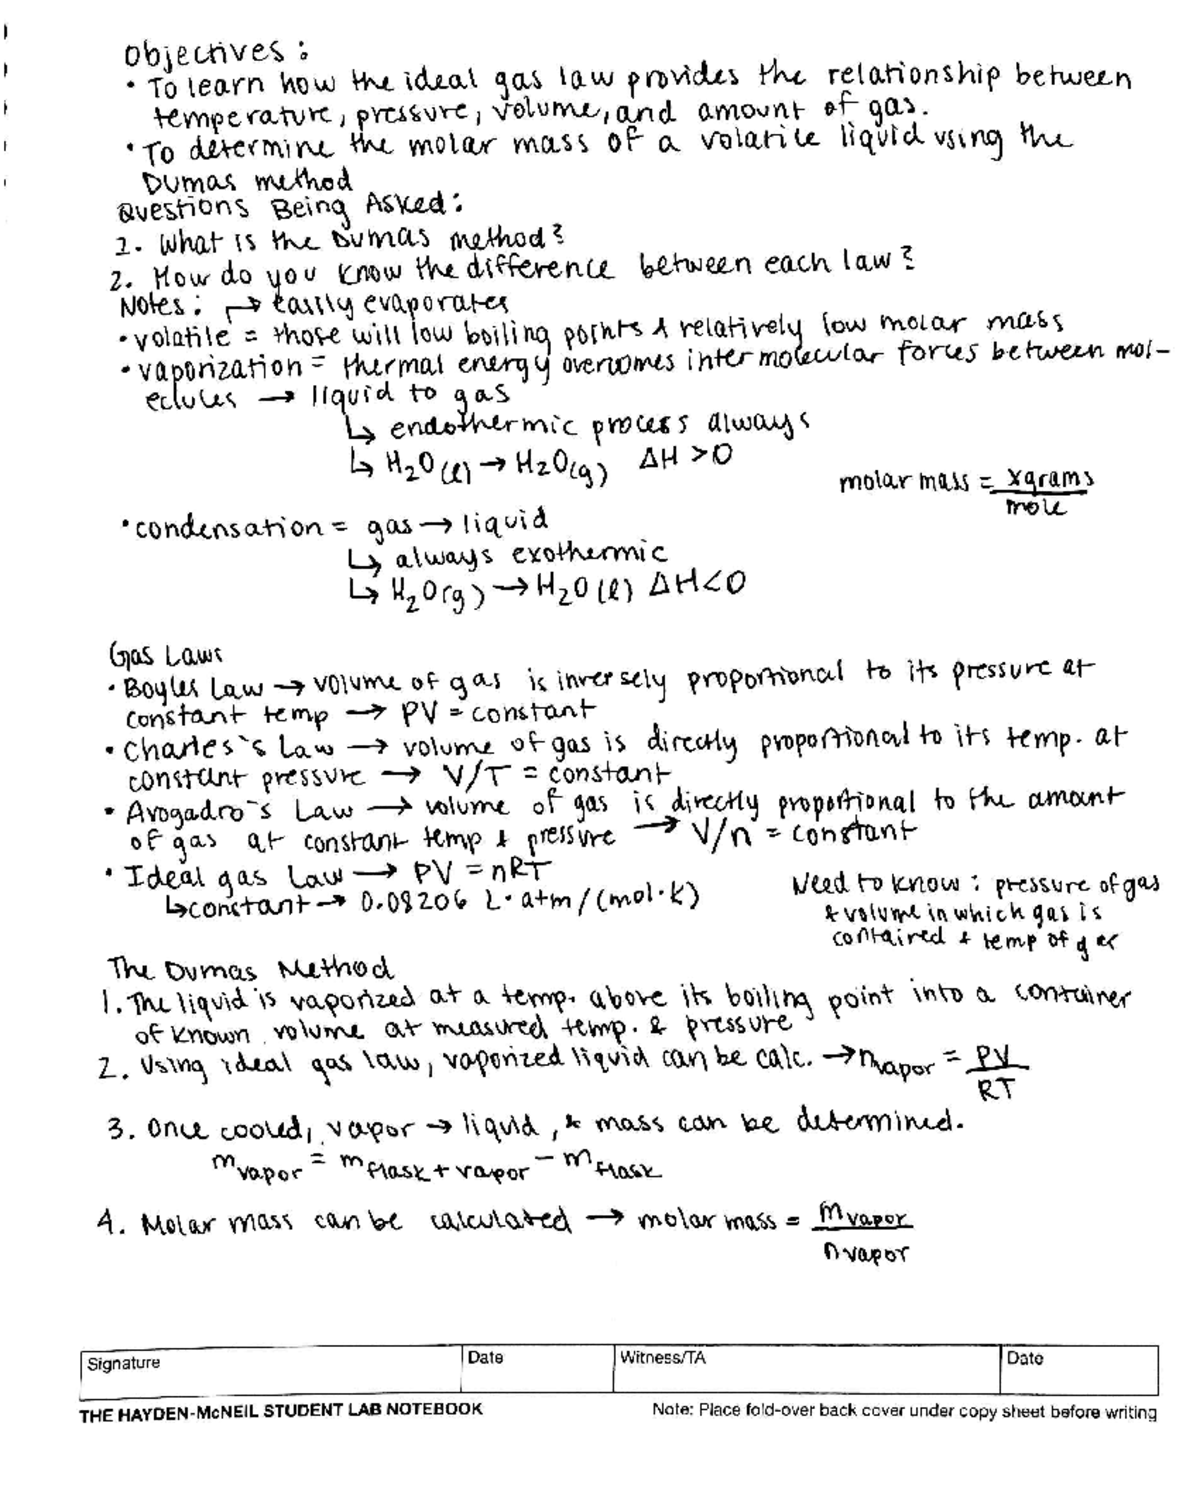 Objectives:
• To learn how the ideal gas law provides the relationship between
temperature, pressure, volume, and amount of gas.
• To determine the molar mass of a volatile liquid using the
Dumas method
Questions Being Asked:
1. What is the Dumas method?
2. How do you know the difference between each law?
Notes: ↱ easily evaporates
• volatile = those will low boiling points & relatively low molar mass
• vaporization = thermal energy overcomes intermolecular forces between mol-
eclules → liquid to gas
↳ endothermic process always
↳ H₂O(l) → H₂O(g) ΔH >0
molar mass = xgrams/mole
• condensation = gas → liquid
↳ always exothermic
↳ H₂O(g) → H₂O(l) ΔH<0
Gas Laws
• Boyles Law → volume of gas is inversely proportional to its pressure at
constant temp → PV = constant
• Charles's Law → volume of gas is directly proportional to its temp. at
constant pressure → V/T = constant
• Avogadro's Law → volume of gas is directly proportional to the amount
of gas at constant temp & pressure → V/n = constant
• Ideal gas Law → PV = nRT
↳constant → 0.08206 L·atm/(mol·K)
Need to know: pressure of gas
& volume in which gas is
contained & temp of gas
The Dumas Method
1. The liquid is vaporized at a temp. above its boiling point into a container
of known volume at measured temp. & pressure
2. Using ideal gas law, vaporized liquid can be calc. → nvapor = PV/RT
3. Once cooled, vapor → liquid, & mass can be determined.
mvapor = mflask+vapor − mflask
4. Molar mass can be calculated → molar mass = mvapor/nvapor
Signature Date Witness/TA Date
THE HAYDEN-McNEIL STUDENT LAB NOTEBOOK Note: Place fold-over back cover under copy sheet before writing